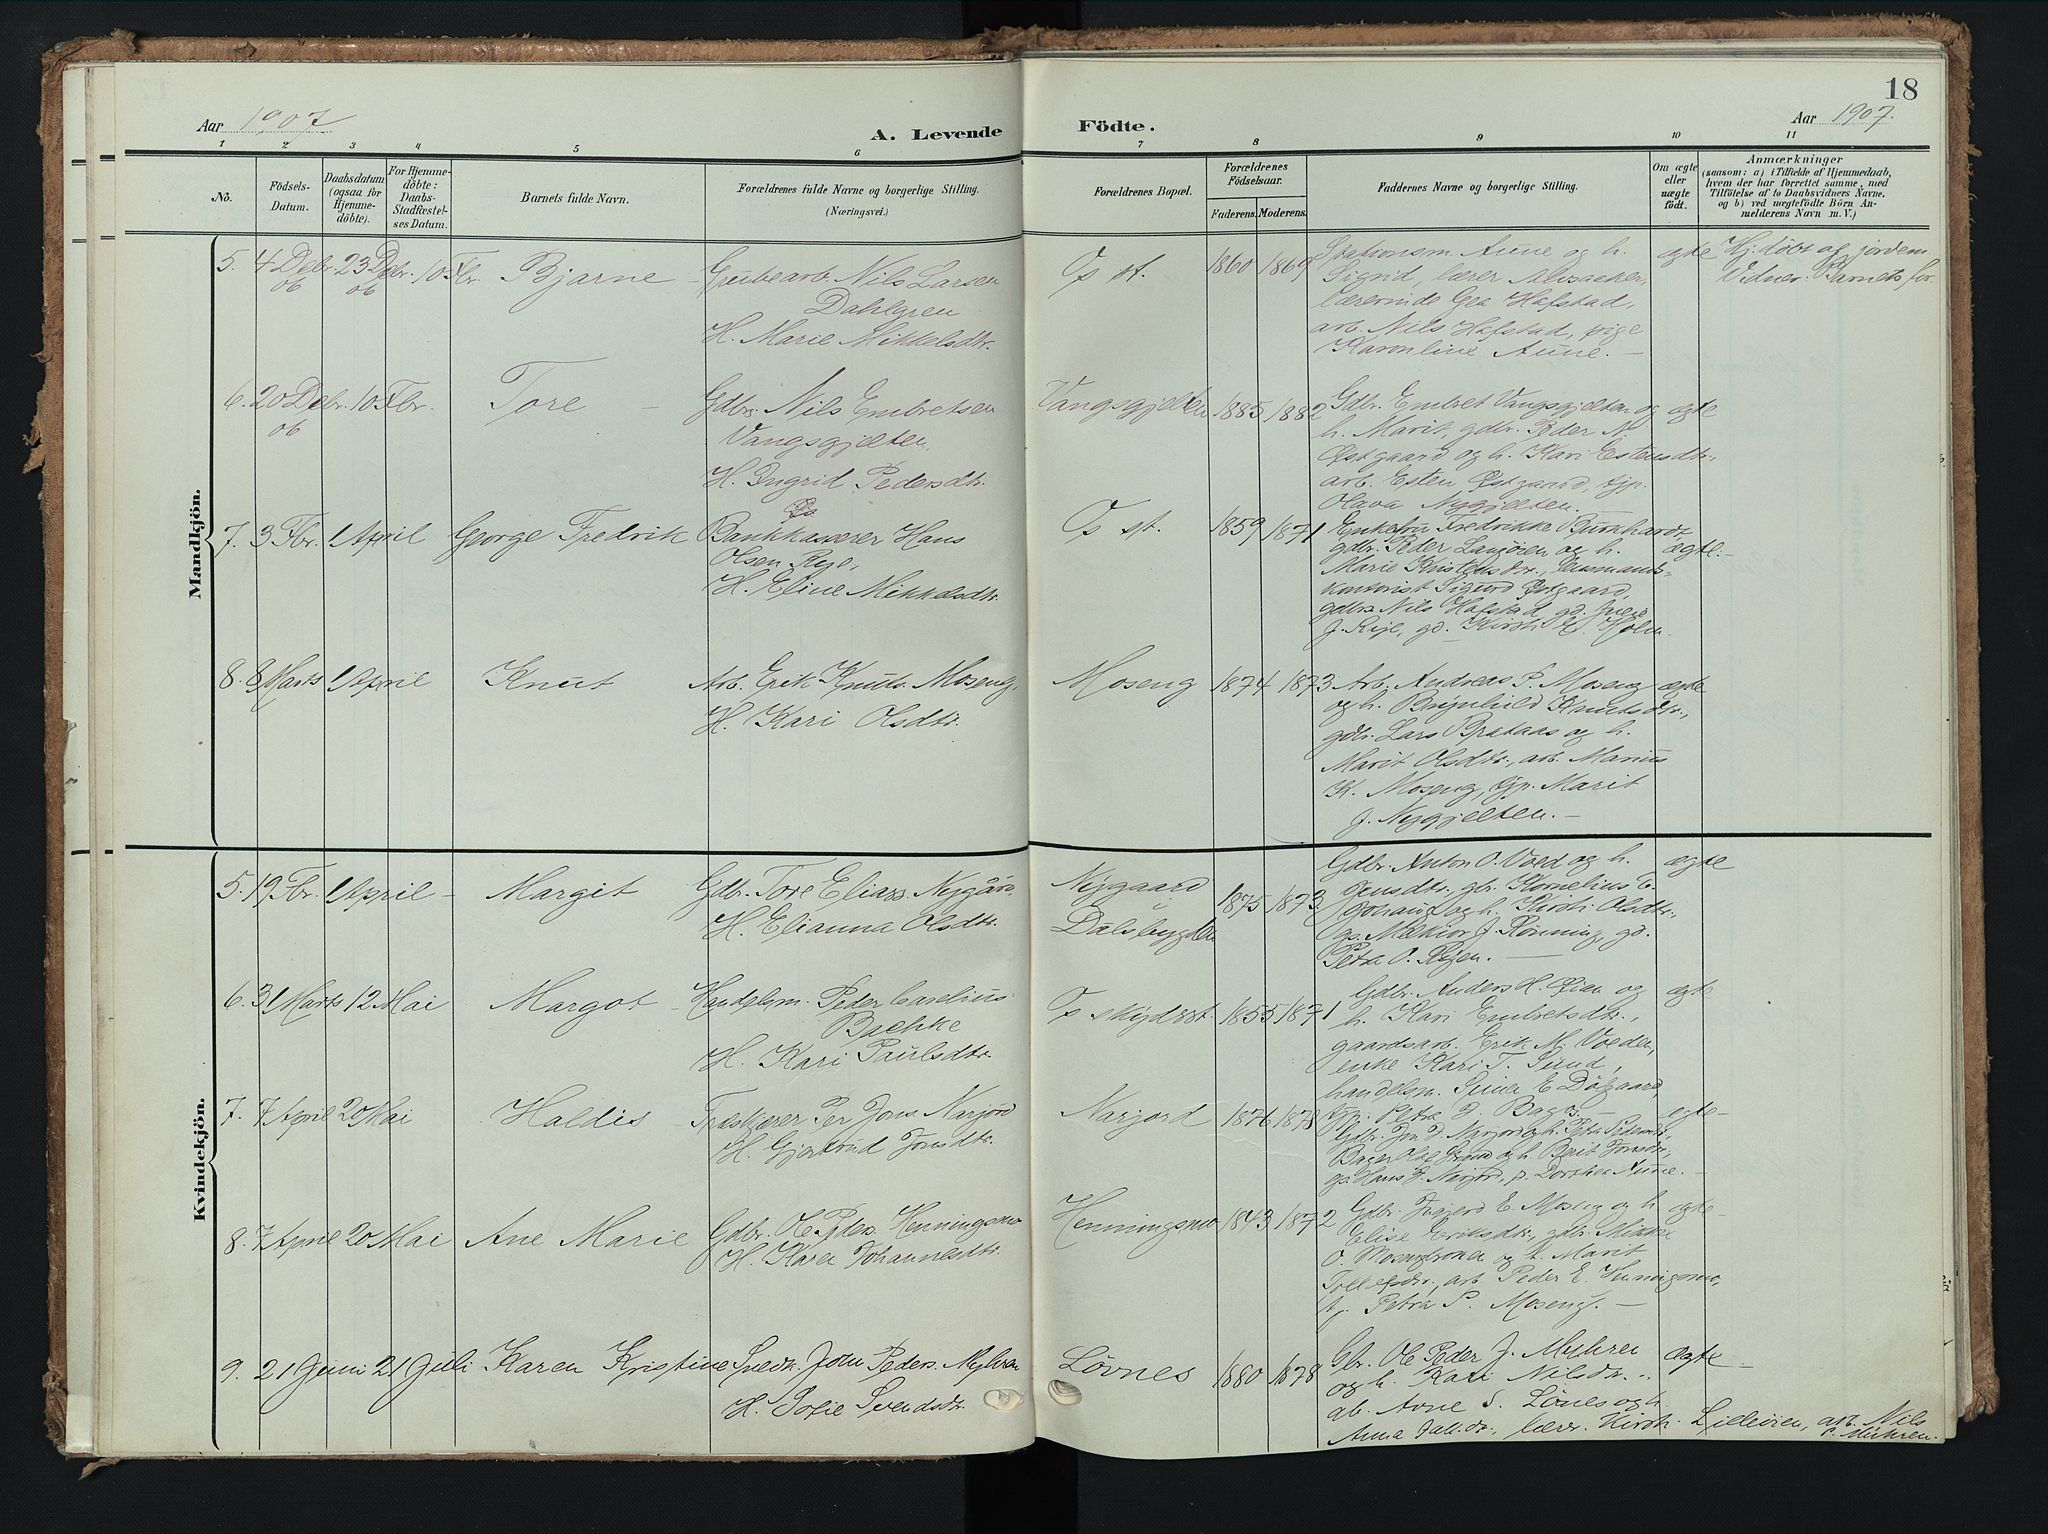 18
Aar 1907
A. Levende Födte.
Aar 1907.
1 2 3 4 5 6 7 8 9 10 11
No.
Födsels-
Datum.
Daabsdatum
(ogsaa for
Hjemme-
döbte).
For Hjemme-
döbte:
Daabs-
Stadfæstel-
ses Datum.
Barnets fulde Navn.
Forældrenes fulde Navne og borgerlige Stilling.
(Næringsvei.)
Forældrenes Bopæl.
Forældrenes
Födselsaar.
Faderens. Moderens.
Faddernes Navne og borgerlige Stilling.
Om ægte
eller
uægte
födt.
Anmærkninger
(saasom: a) i Tilfælde af Hjemmedaab,
hvem der har forrettet samme, med
Tilföielse af to Daabsvidners Navne.
og b) ved uægtefödte Börn An-
melderens Navn m. V.)
Mandkjön.
5. 4 Debr. 06 23 Debr. 06 10 Fbr. Bjarne
Grubearb. Nils Larsen
Dahlgren
H. Marie Mikkelsdtr.
Os st. 1860 1869
Stationsm. Aune og h.
Sigrid, lærer
lærerinde Gea Hafstad,
arb. Nils Hafstad, pige
Karonline Aune. —
ægte
Hj. döbt af jordem.
Vidner: Barnets for.
6. 20 Debr. 06 10 Fbr. Tore —
Gdbr. Nils Embretsen
Vangsgjelten,
H. Ingrid Pedersdtr.
Vangsgjelten 1885 1882
Gdbr. Embret Vangsgjelten og
h. Marit, gdbr. Peder N.
Østgaard og h. Kari Estensdtr.,
arb. Esten Østgaard, tjp.
Olava Nygjelten. —
ægte
7. 3 Fbr. 1 April George Fredrik
Bankkasserer Hans
Olsen Rye,
H. Eline Mikkelsdtr.
Os st. 1859 1871
Enkefru Fredrikke Burkhardt,
gdbr. Peder Langöien og h.
Marie Kristensdtr., Lensmands-
kontorist Sigurd Østgaard,
gdbrs. Nils Hafstad, gd.
J. Rye, gd. Kirsti Holm.
ægte. —
8. 8 Marts 1 April Knut
Arb. Erik Knuts. Moseng,
H. Kari Olsdtr.
Moseng 1874 1873
Arb. Andreas P. Moseng
og h. Brynhild Knutsdtr.,
gdbr. Lars Brataas og h.
Marit Olsdtr., arb. Marius
K. Moseng, tjp. Marit
J. Nygjelten. —
ægte
Kvindekjön.
5. 19 Fbr. 1 April — Margit
Gdbr. Tore Eliass. Nygård
H. Elianna Olsdtr.
Nygaard
Dalsbygden
1875 1873
Gdbr. Anton O. Voed og h.
Jensdtr., gbr. Kornelius E.
og h. Kirsti Olsdtr.,
gs. Melkior J. Rönning, gd.
Petra O. —
ægte
6. 31 Marts 12 Mai Margot —
Handelsm. Peder Carelius
Bjække
H. Kari Paulsdtr.
Os skydsst. 1855 1871
Gdbr. Anders H. Øian og
h. Kari Embretsdtr.,
gaardsarb. Erik M. Voeden,
enke Kari T. Sund,
handelsm. E. Dölgaard,
tjp. Petra
ægte
7. 7 April 20 Mai Haldis —
Træskjærer Per Jons. Narjord
H. Gjertrud Jonsdtr.
Narjord 1876 1878
Gdbr. Jon Narjord og h.
Bager Ole og h. Berit Jonsdr.,
gs. Hans Narjord, p. Dorthea Aune. —
ægte —
8. 7 April 20 Mai Ane Marie
Gdbr. Ole Peders. Henningsmo
H. Karen Johannesdtr.
Henningsmo 1843 1872
Gdbr. E. Moseng og h.
Elise Eriksdtr., gdbr. Mikke
O. og h. Marit
arb. Peder E. Henningsmo,
tj. Petra P. Moseng. —
ægte —
9. 21 Juni 21 Juli Karen Kristine
Snedk. Jon Peders. Myhren
H. Sofie Svendsdtr.
Lövnes 1880 1878
Gbr. Ole Peder J. Myhren
og h. Kari Nilsdtr.,
arb. Arne S. Lövnes og h.
Anna lærer. Kirsti Lilleöien, arb. Nils
P. Myhren.
ægte —